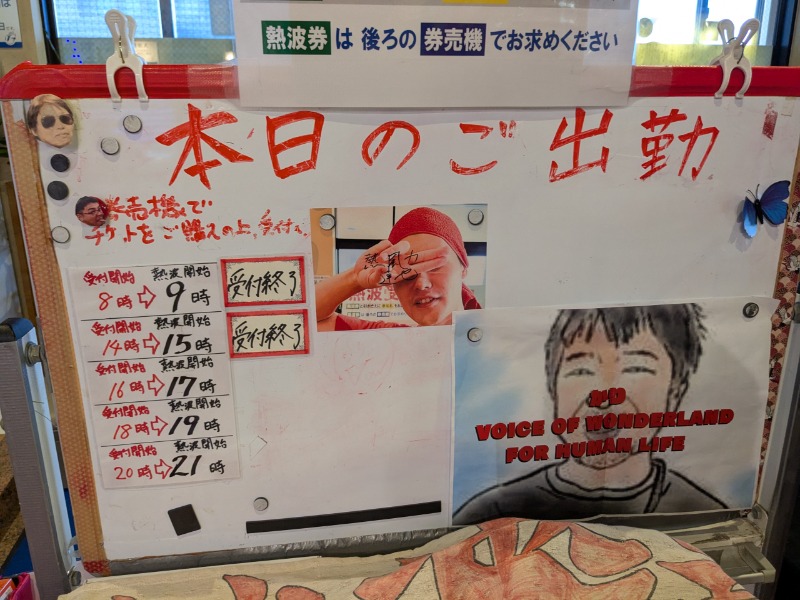 熱波券 は 後ろの 券売機 でお求めください
本日のご出勤
券売機で
チケットをご購入の上、受付へ
受付開始 熱波開始
8時⇨9時
受付終了
受付開始 熱波開始
14時⇨15時
受付終了
受付開始 熱波開始
16時⇨17時
受付開始 熱波開始
18時⇨19時
受付開始 熱波開始
20時⇨21時
VOICE OF WONDERLAND
FOR HUMAN LIFE